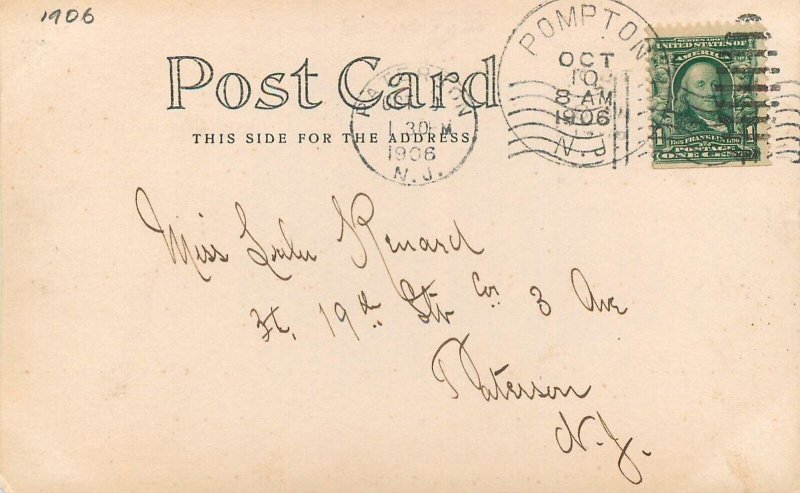 1906
Post Card
THIS SIDE FOR THE ADDRESS.
PATERSON
OCT
1 30 PM
1906
N. J.
POMPTON
OCT
10
8 AM
1906
N. J.
SERIES 1902
UNITED STATES OF
AMERICA
FRANKLIN
POSTAGE
ONE CENT
Miss Lulu Renard
19th Str Cor 3 Ave
Paterson
N. J.